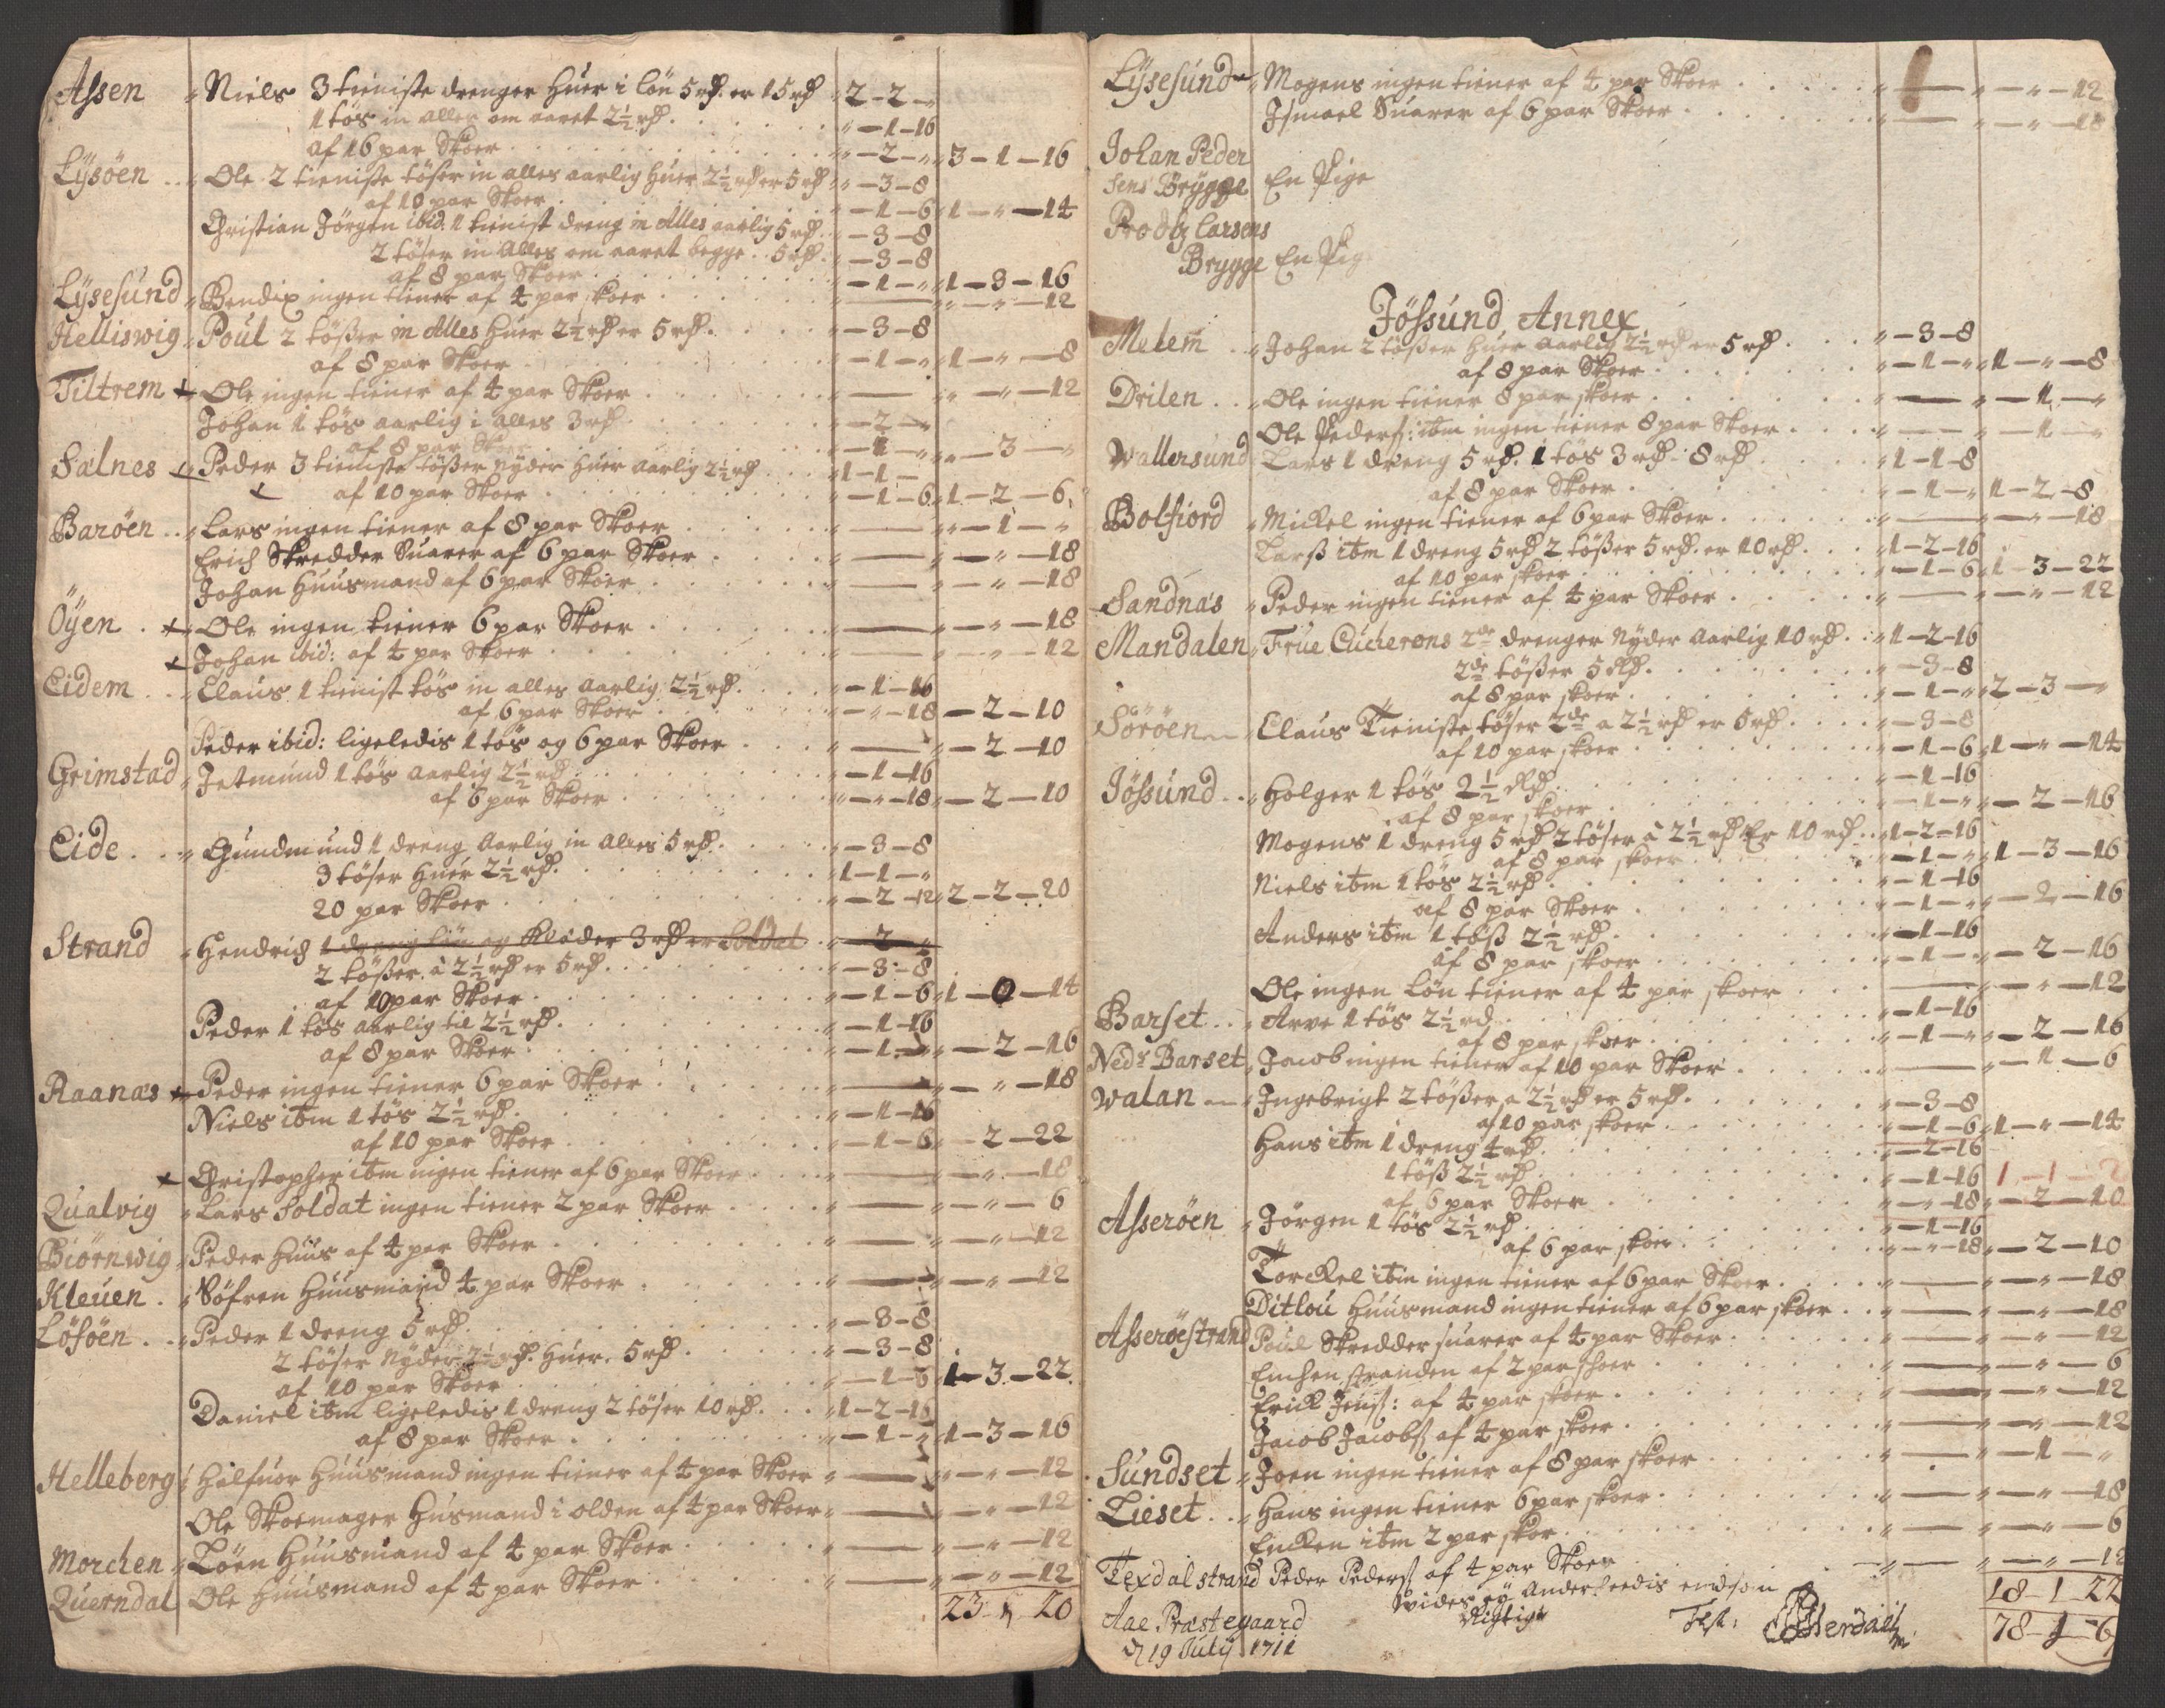 Assen " Niels 3 tieniste drenger huer i løn 5 rd. er 15 rd " 2 - 2 - "
1 tøs in alles om aaret 2½ rd. " - 1 - 16
af 16 par Skoer " - 2 - " 3 - 1 - 16
Lÿsöen " Ole 2 tieniste tøser in alles aarlig huer 2½ rd er 5 rd " - 3 - 8
af 10 par Skoer " - 1 - 6 " 1 - " - 14
Christian Jörgen ibid. 1 tienist dreng in Alles aarlig 5 rd. " - 3 - 8
2 tøser in Alles om aaret begge 5 rd. " - 3 - 8
af 8 par Skoer " - 1 - " 1 - 3 - 16
Lÿsesund " Bendix ingen tiener af 4 par skoer " — " - " - 12
Helliswig " Poul 2 tøßer in Alles huer 2½ rd er 5 rd. " - 3 - 8
af 8 par Skoer " - 1 - " 1 - " - 8
Tiltrem " Ole ingen tiener af 4 par Skoer " — " - " - 12
Johan 1 tøs aarlig i alles 3 rd " - 2 - "
af 8 par Skoer " - 1 - " " - 3 - "
Salnes " Peder 3 tieniste tøßer nÿder huer aarlig 2½ rd " 1 - 1 -
af 10 par Skoer " - 1 - 6 " 1 - 2 - 6
Baröen " Lars ingen tiener af 8 par Skoer " — " - 1 - "
Erich Skredder Suarer af 6 par Skoer " — " - " - 18
Johan Huusmand af 6 par Skoer " — " - " - 18
Öÿen " Ole ingen tiener 6 par Skoer " — " - " - 18
Johan ibid: af 4 par Skoer " — " - " - 12
Eidem " Claus 1 tienist tøs in alles aarlig 2½ rd. " - 1 - 16
af 6 par Skoer " - " - 18 " - 2 - 10
Peder ibid: ligeledis 1 tøs og 6 par Skoer " — " - 2 - 10
Grimstad " Jetmund 1 tøs aarlig 2½ rd. " - 1 - 16
af 6 par Skoer " - " - 18 " - 2 - 10
Eide " Gundmund 1 dreng Aarlig in Alles 5 rd. " - 3 - 8
3 tøser huer 2½ rd. " 1 - 1 - "
20 par Skoer " - 2 - 12 " 2 - 2 - 20
Strand " Hendrich 1 dreng løn og Klæder 3 rd er Soldat " - 2 - "
2 tøßer à 2½ rd er 5 rd. " - 3 - 8
af 10 par Skoer " - 1 - 6 " 1 - 0 - 14
Peder 1 tøs aarlig til 2½ rd. " - 1 - 16
af 8 par Skoer " - 1 - " " - 2 - 16
Raanæs " Peder ingen tiener 6 par Skoer " — " - " - 18
Niels ibm 1 tøs 2½ rd. " - 1 - 16
af 10 par Skoer " - 1 - 6 " - 2 - 22
Christopher ibm ingen tiener af 6 par Skoer " — " - " - 18
Qualvig " Lars Soldat ingen tiener 2 par Skoer " — " - " - 6
Biörnwig " Peder Huus af 4 par Skoer " — " - " - 12
Kleuen " Söfren Huusmand 4 par Skoer " — " - " - 12
Lösöen " Peder 1 dreng 5 rd. " - 3 - 8
2 tøser nÿder 2½ rd. huer. 5 rd. " - 3 - 8
af 10 par Skoer " - 1 - 6 " 1 - 3 - 22
Daniel ibm ligeledis 1 dreng 2 tøser 10 rd. " 1 - 2 - 16
af 8 par Skoer " - 1 - " 1 - 3 - 16
Helleberg " Halfuor Huusmand ingen tiener af 4 par Skoer " — " - " - 12
Ole Skoemager Husmand i olden af 4 par Skoer " — " - " - 12
Morchen " Löen Huusmand af 4 par Skoer " — " - " - 12
Querndal Ole Huusmand af 4 par Skoer " — " - " - 12
23 - 1 - 20
Lÿsesund " Mogens ingen tiener af 4 par Skoer " — " - " - 12
Ismael Suarer af 6 par Skoer " — " - " - 18
Johan Peder
sens Brÿgge En Pige
Carsens
Brygge En Pig
Jössund Annex
Melem " Johan 2 tøßer huer aarlig 2½ rd er 5 rd " - 3 - 8
af 8 par Skoer " - 1 - " 1 - " - 8
Drilen " Ole ingen tiener 8 par skoer " — " - 1 - "
Ole Peders: ibm ingen tiener 8 par Skoer " — " - 1 - "
Wallersund Lars 1 dreng 5 rd. 1 tøs 3 rd - 8 rd " 1 - 1 - 8
af 8 par Skoer " - 1 - " 1 - 2 - 8
Bolfiord " Mickel ingen tiener af 6 par Skoer " — " - " - 18
Larß ibm 1 dreng 5 rd 2 tøßer 5 rd. er 10 rd. " 1 - 2 - 16
af 10 par skoer " - 1 - 6 " 1 - 3 - 22
Sandnæs " Peder ingen tiener af 4 par Skoer " — " - " - 12
Mandalen " Frue Cucherons 2de drenger Nÿder Aarlig 10 rd. " 1 - 2 - 16
2de tøßer 5 Rd. " - 3 - 8
af 8 par skoer " - 1 - " 2 - 3 - "
Söröen " Claus Tieniste tøser 2de a 2½ rd er 5 rd. " - 3 - 8
af 10 par skoer " - 1 - 6 " 1 - " - 14
Jössund " Holger 1 tøs 2½ Rd. " - 1 - 16
af 8 par skoer " - 1 - " " - 2 - 16
Mogens 1 dreng 5 rd 2 tøser à 2½ rd Er 10 rd. " 1 - 2 - 16
af 8 par skoer " - 1 - " 1 - 3 - 16
Niels ibm 1 tøs 2½ rd. " - 1 - 16
af 8 par Skoer " - 1 - " " - 2 - 16
Anders ibm 1 tøß 2½ rd. " - 1 - 16
af 8 par skoer " - 1 - " " - 2 - 16
Ole ingen Løn tiener af 4 par skoer — " - " - 12
Barset " Arve 1 tøs 2½ rd. " - 1 - 16
af 8 par skoer " - 1 - " " - 2 - 16
Nedr Barset " Jacob ingen tiener af 10 par Skoer " — " - 1 - 6
Walan " Ingebrigt 2 tøßer a 2½ rd er 5 rd. " - 3 - 8
af 10 par skoer " - 1 - 6 " 1 - " - 14
Hans ibm 1 dreng 4 rd. " - 2 - 16
1 tøß 2½ rd. " - 1 - 16 1 - 1 - 2
af 6 par Skoer " - " - 18 " - 2 - 10
Asseröen " Jörgen 1 tøs 2½ rd. " - 1 - 16
af 6 par skoer " - " - 18 " - 2 - 10
Torckel ibm ingen tiener af 6 par Skoer " — " - " - 18
Ditlou Huusmand ingen tiener af 6 par skoer " — " - " - 18
Asseröestrand Poul Skredder suarer af 4 par Skoer " — " - " - 12
Enchen stranden af 2 par Skoer " — " - " - 6
Erick Jens: af 4 par skoer " — " - " - 12
Jacob Jacobs af 4 par skoer " — " - " - 12
Sundset " Joen ingen tiener af 8 par skoer " — " - 1 - "
Lieset " Hans ingen tiener 6 par skoer " — " - " - 18
Encken ibm 2 par skor " — " - " - 6
Texdal strand Peder Peders af 4 par Skoer " — " - " - 12
Svides eÿ Anderleedis end som 18 - 1 - 22
Aae Præstegaard Rigtigt Test: 78 - 1 - 6
d 19 Julÿ 1711